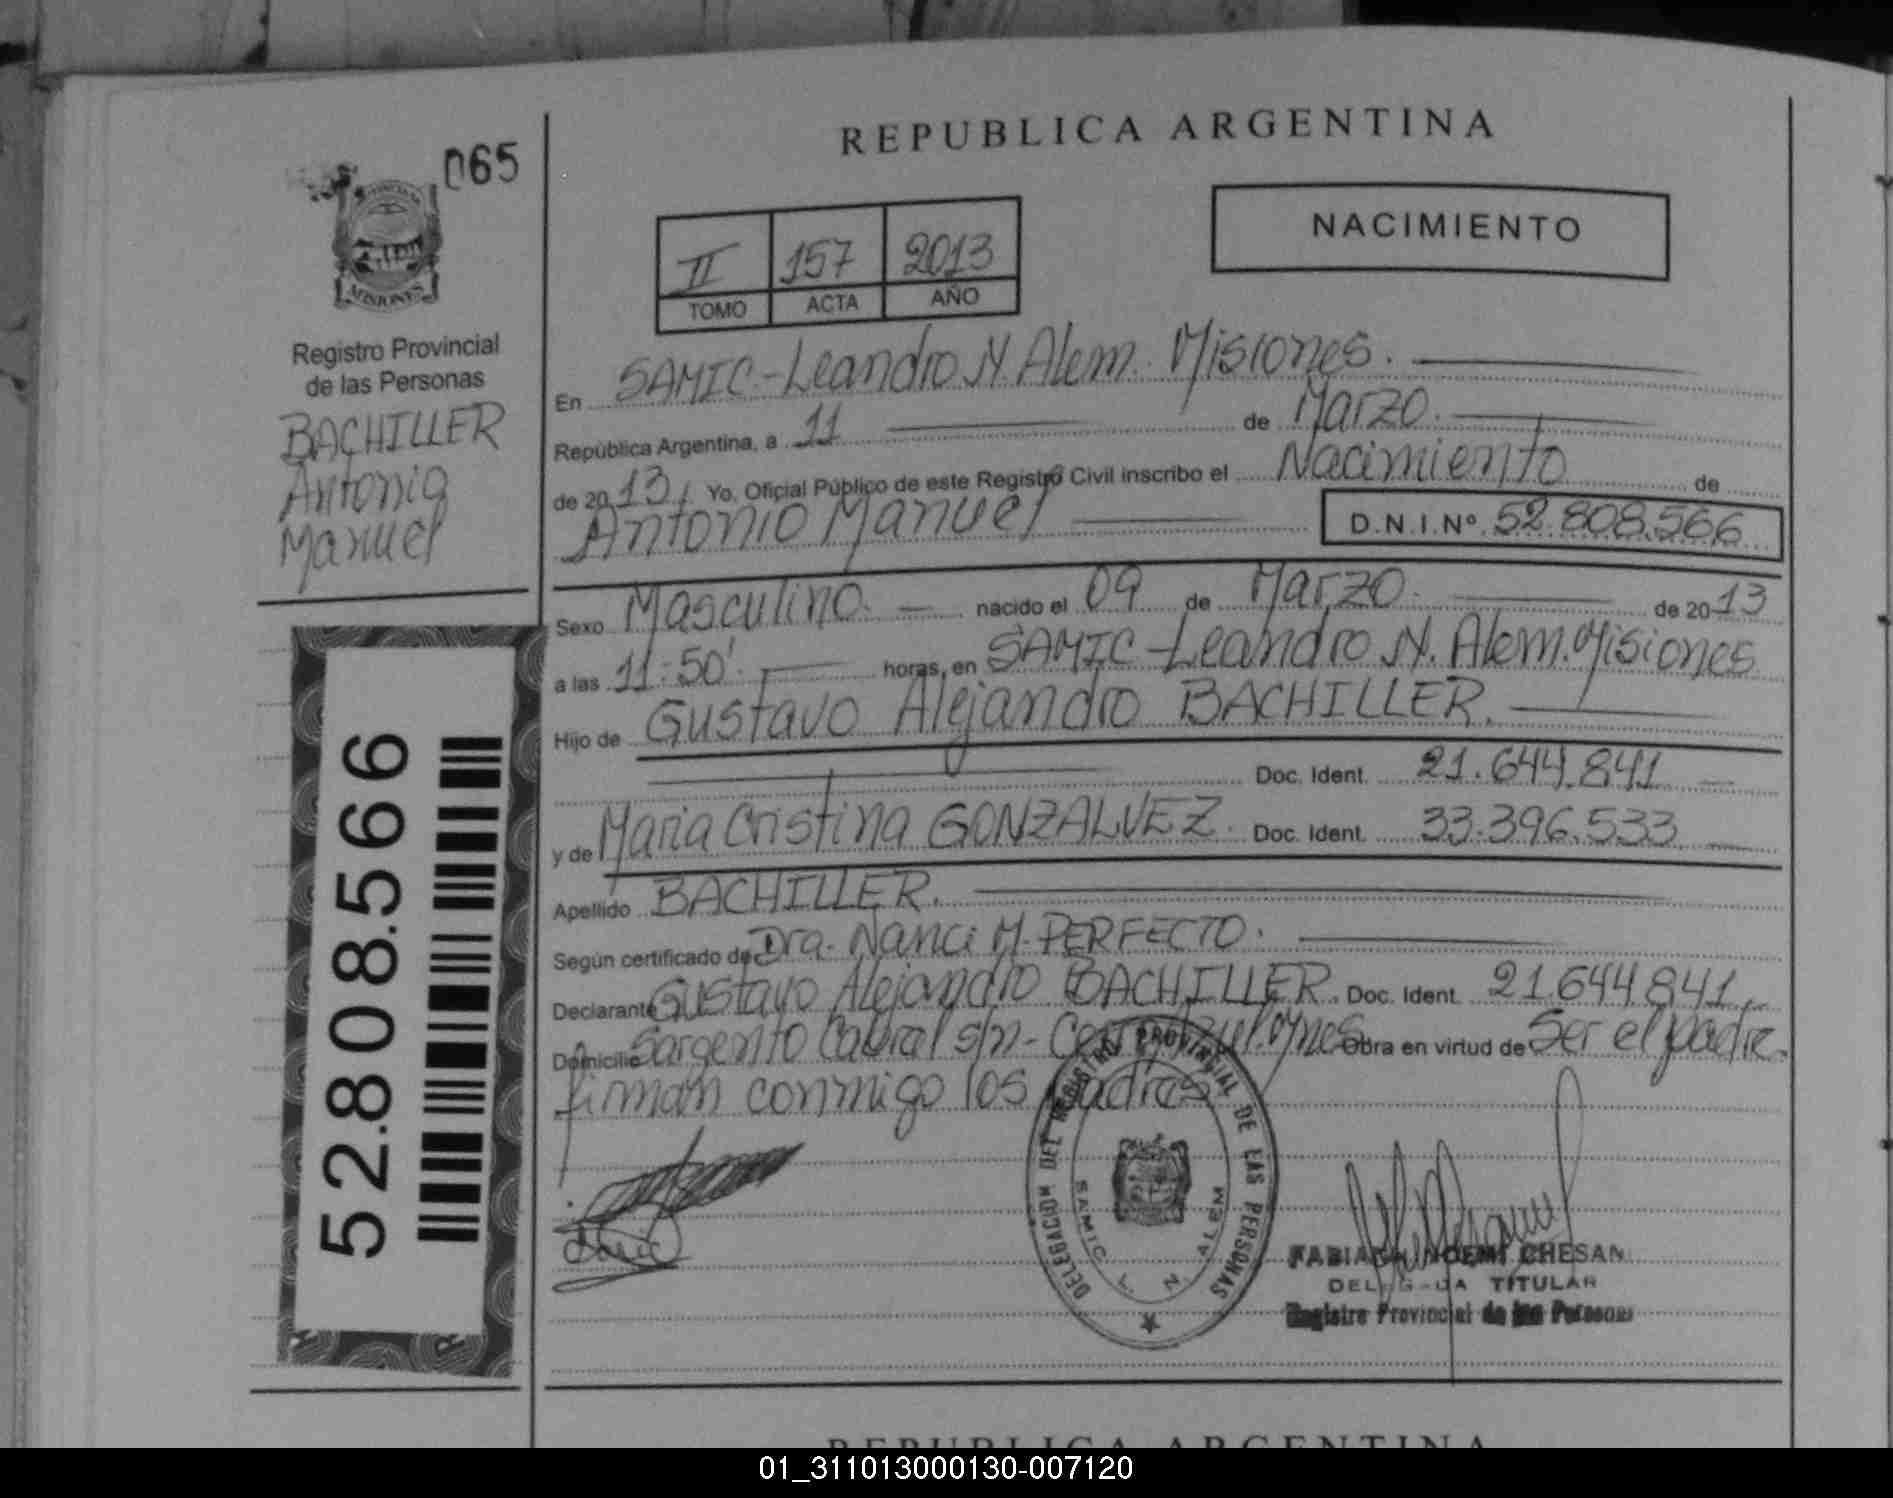 065
REPUBLICA ARGENTINA
NACIMIENTO
II 157 2013
TOMO ACTA AÑO
MISIONES
Registro Provincial
de las Personas
BACHILLER
Antonio
Manuel
En SAMIC-Leandro N. Alem. Misiones.
República Argentina, a 11 de Marzo.
de 2013, Yo, Oficial Público de este Registro Civil inscribo el Nacimiento de
Antonio Manuel D.N.I.Nº 52.808.566
Sexo Masculino. nacido el 09 de Marzo. de 2013
a las 11:50'. horas, en SAMIC-Leandro N. Alem. Misiones
Hijo de Gustavo Alejandro BACHILLER.
Doc. Ident. 21.644.841
y de Maria Cristina GONZALVEZ. Doc. Ident. 33.396.533
Apellido BACHILLER.
Según certificado de Dra. Nanci M. PERFECTO.
Declarante Gustavo Alejandro BACHILLER. Doc. Ident. 21.644.841,
Domicilio Sargento Cabral s/n- Cerro Azul. Mnes. Obra en virtud de Ser el padre.
firman conmigo los padres
52.808.566
DELEGACION DEL REGISTRO PROVINCIAL DE LAS PERSONAS
SAMIC L. N. ALEM
FABIANA NOEMI CHESAN
DELEGADA TITULAR
Registro Provincial de las Personas
REPUBLICA ARGENTINA
01_311013000130-007120